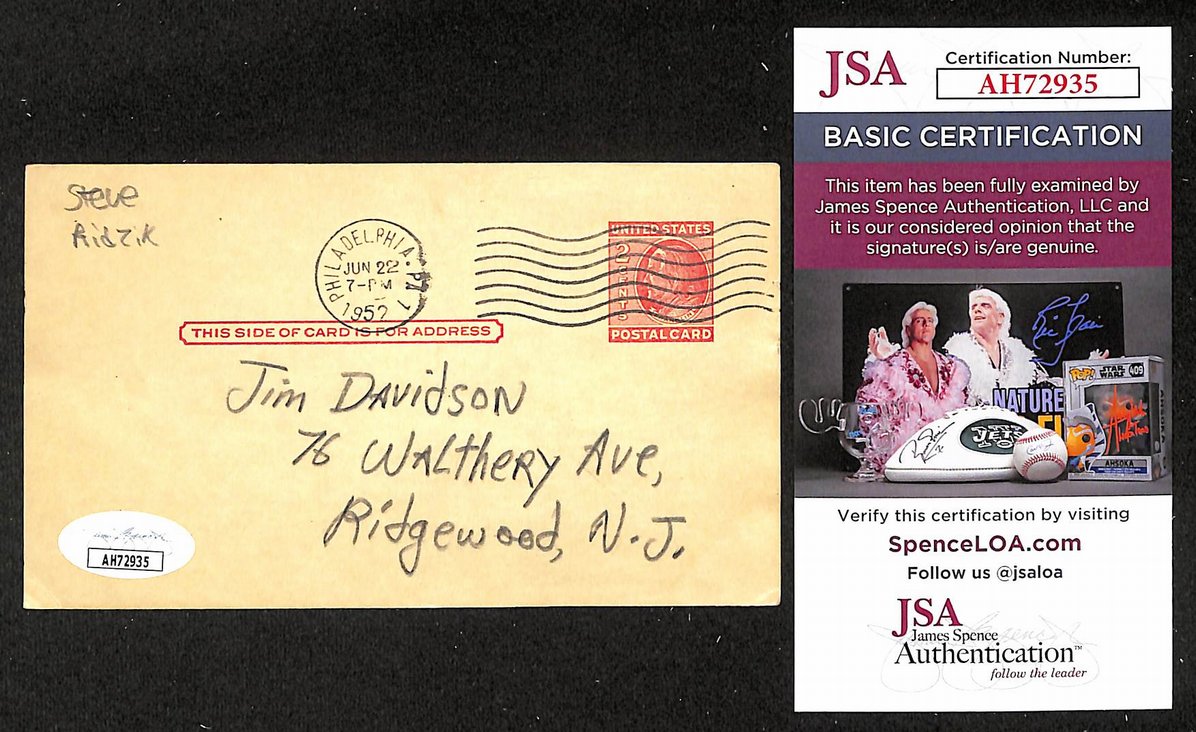 Steve
Ridzik
PHILADELPHIA. PA
JUN 22
7-PM
1952
1
UNITED STATES
2
CENTS
POSTAL CARD
THIS SIDE OF CARD IS FOR ADDRESS
Jim Davidson
76 Walthery Ave,
Ridgewood, N.J.
AH72935
JSA
Certification Number:
AH72935
BASIC CERTIFICATION
This item has been fully examined by
James Spence Authentication, LLC and
it is our considered opinion that the
signature(s) is/are genuine.
Ric Flair
NATURE
JETS
POP!
STAR
WARS
409
AHSOKA
Verify this certification by visiting
SpenceLOA.com
Follow us @jsaloa
JSA
James Spence
Authentication™
follow the leader